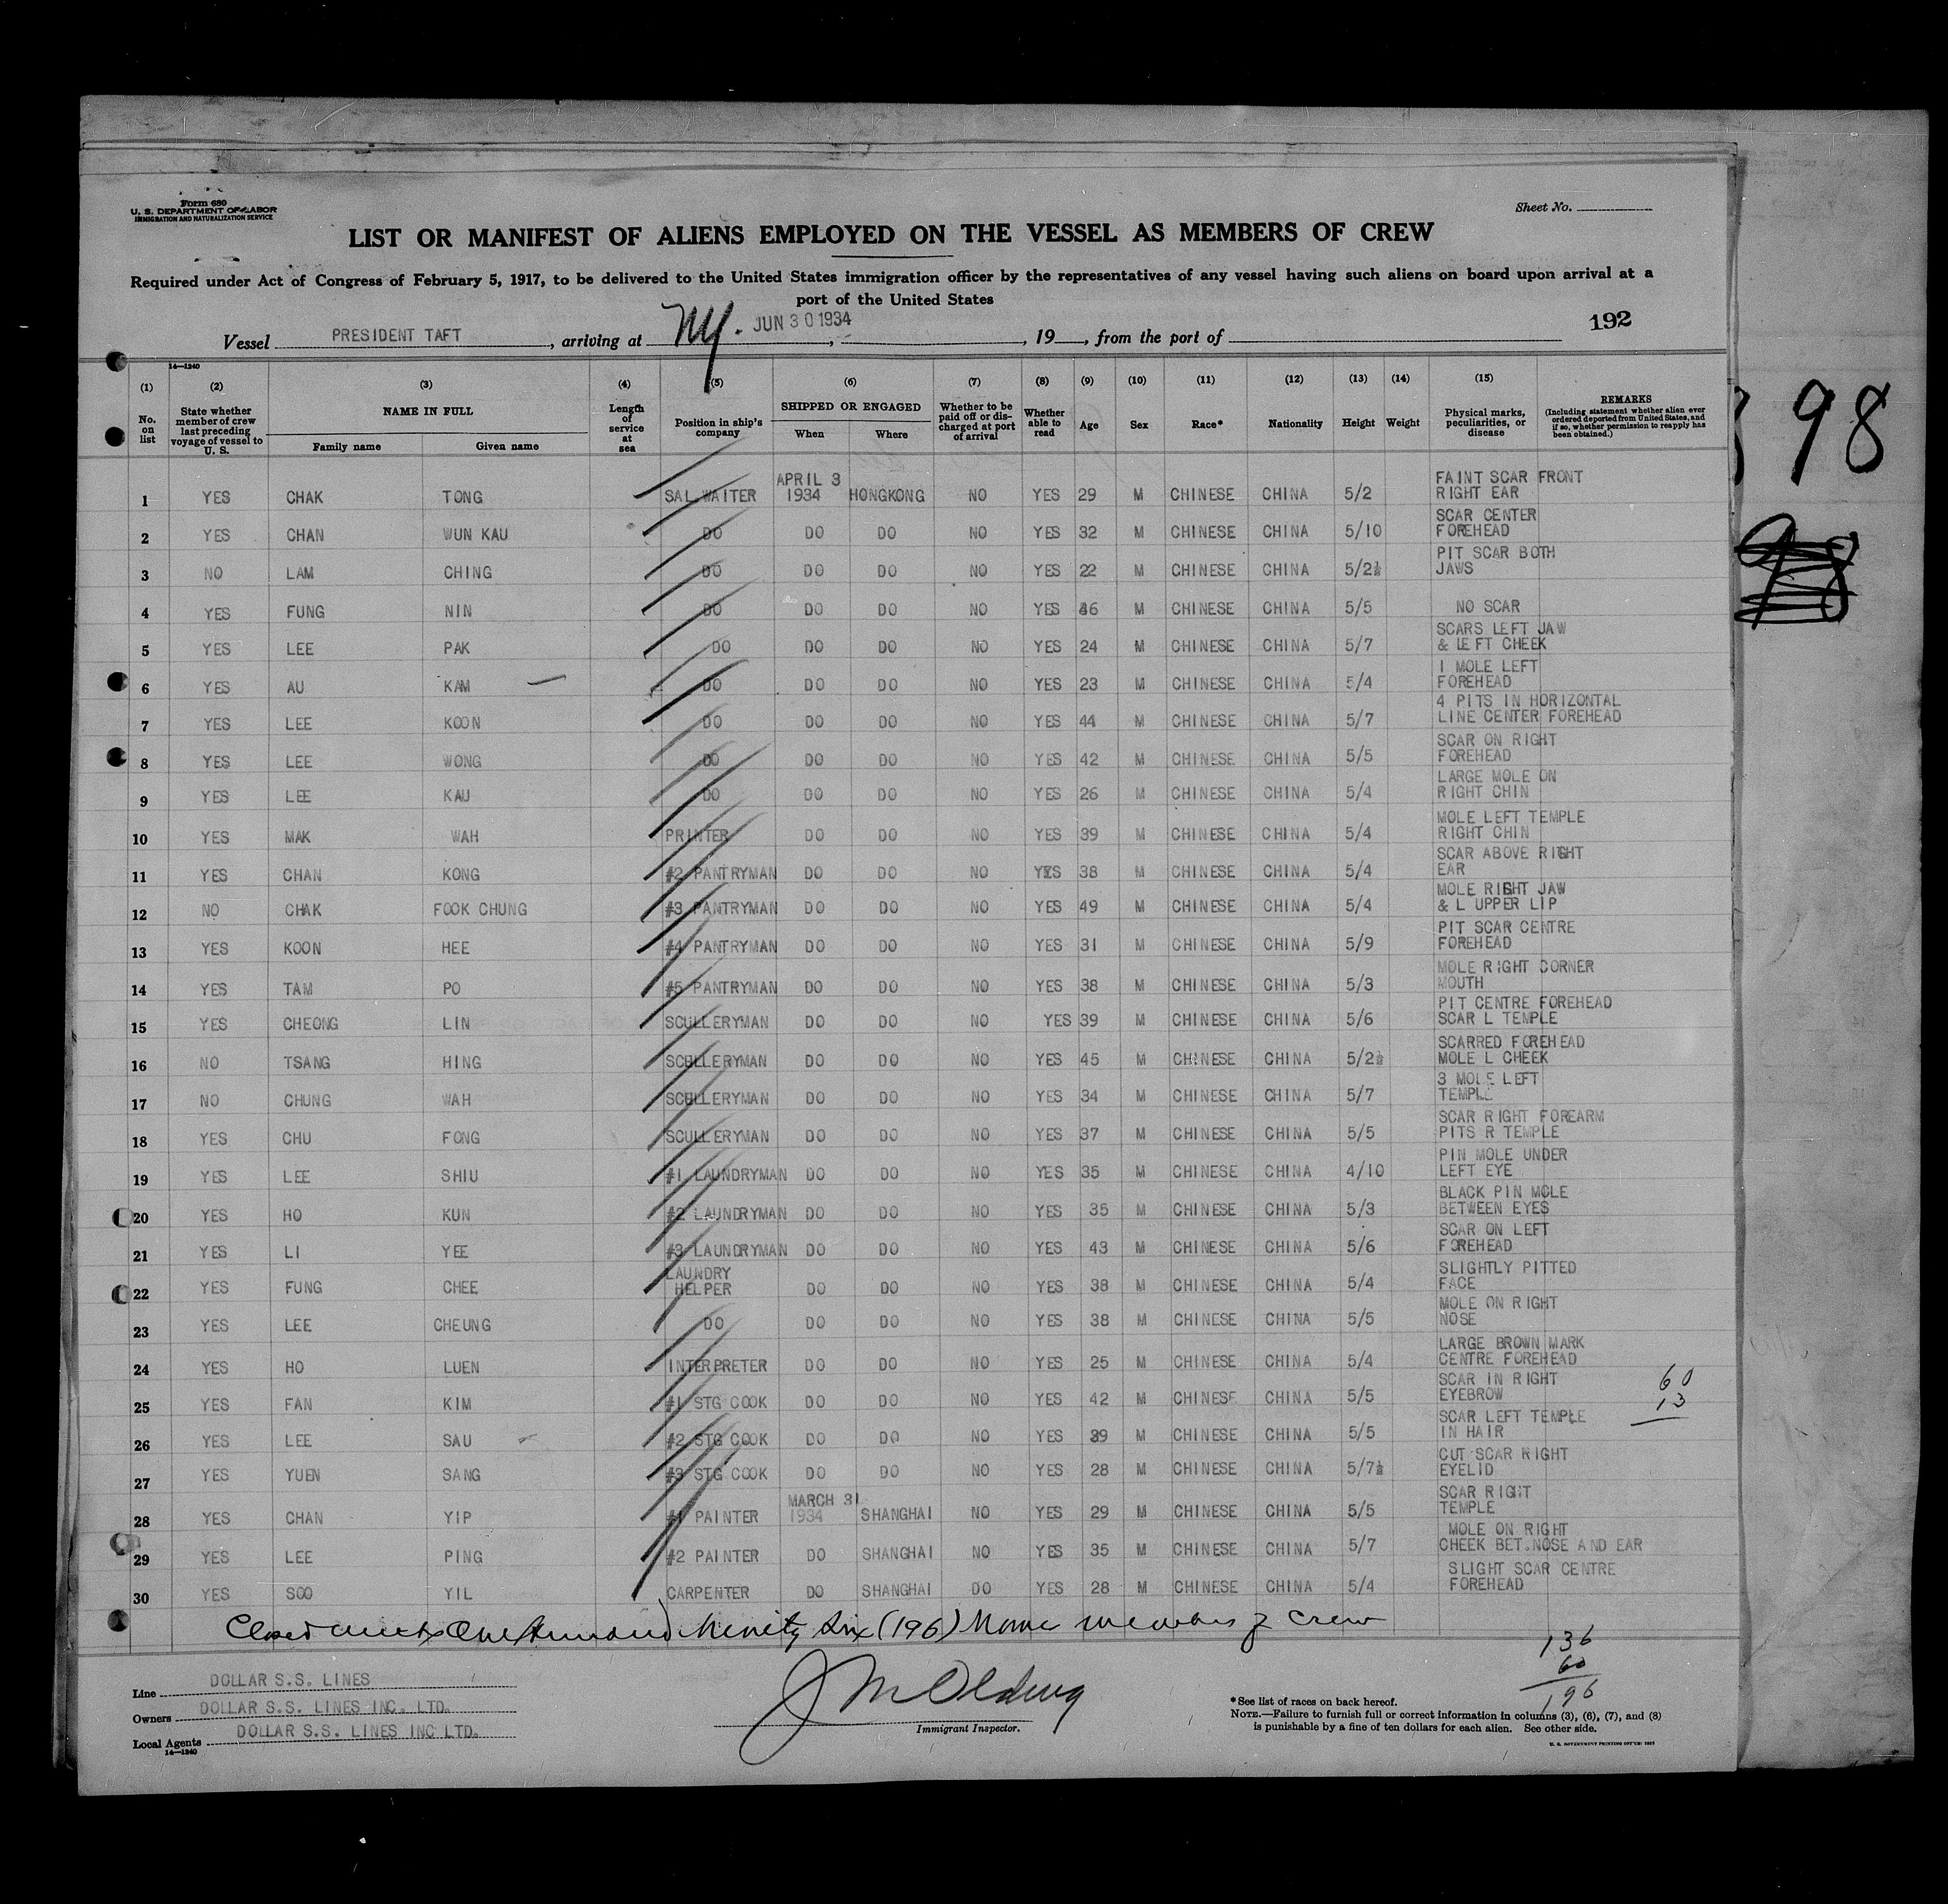 Form 680
U. S. DEPARTMENT OF LABOR
IMMIGRATION AND NATURALIZATION SERVICE
Sheet No.
LIST OR MANIFEST OF ALIENS EMPLOYED ON THE VESSEL AS MEMBERS OF CREW
Required under Act of Congress of February 5, 1917, to be delivered to the United States immigration officer by the representatives of any vessel having such aliens on board upon arrival at a
port of the United States
Vessel PRESIDENT TAFT, arriving at NY. JUN 30 1934, 19, from the port of
192
14—1240
(1) No. on list (2) State whether member of crew last preceding voyage of vessel to U. S. (3) NAME IN FULL Family name Given name (4) Length of service at sea (5) Position in ship's company (6) SHIPPED OR ENGAGED When Where (7) Whether to be paid off or discharged at port of arrival (8) Whether able to read (9) Age (10) Sex (11) Race* (12) Nationality (13) Height (14) Weight (15) Physical marks, peculiarities, or disease REMARKS (Including statement whether alien ever ordered deported from United States, and if so, whether permission to reapply has been obtained.)
98
1 YES CHAK TONG SAL WAITER APRIL 3 1934 HONGKONG NO YES 29 M CHINESE CHINA 5/2 FAINT SCAR FRONT RIGHT EAR
2 YES CHAN WUN KAU DO DO DO NO YES 32 M CHINESE CHINA 5/10 SCAR CENTER FOREHEAD
3 NO LAM CHING DO DO DO NO YES 22 M CHINESE CHINA 5/2½ PIT SCAR BOTH JAWS
4 YES FUNG NIN DO DO DO NO YES 46 M CHINESE CHINA 5/5 NO SCAR
5 YES LEE PAK DO DO DO NO YES 24 M CHINESE CHINA 5/7 SCARS LEFT JAW & LEFT CHEEK
6 YES AU KAM DO DO DO NO YES 23 M CHINESE CHINA 5/4 1 MOLE LEFT FOREHEAD
7 YES LEE KOON DO DO DO NO YES 44 M CHINESE CHINA 5/7 4 PITS IN HORIZONTAL LINE CENTER FOREHEAD
8 YES LEE WONG DO DO DO NO YES 42 M CHINESE CHINA 5/5 SCAR ON RIGHT FOREHEAD
9 YES LEE KAU DO DO DO NO YES 26 M CHINESE CHINA 5/4 LARGE MOLE ON RIGHT CHIN
10 YES MAK WAH PRINTER DO DO NO YES 39 M CHINESE CHINA 5/4 MOLE LEFT TEMPLE RIGHT CHIN
11 YES CHAN KONG #2 PANTRYMAN DO DO NO YES 38 M CHINESE CHINA 5/4 SCAR ABOVE RIGHT EAR
12 NO CHAK FOOK CHUNG #3 PANTRYMAN DO DO NO YES 49 M CHINESE CHINA 5/4 MOLE RIGHT JAW & L UPPER LIP
13 YES KOON HEE #4 PANTRYMAN DO DO NO YES 31 M CHINESE CHINA 5/9 PIT SCAR CENTRE FOREHEAD
14 YES TAM PO #5 PANTRYMAN DO DO NO YES 38 M CHINESE CHINA 5/3 MOLE RIGHT CORNER MOUTH
15 YES CHEONG LIN SCULLERYMAN DO DO NO YES 39 M CHINESE CHINA 5/6 PIT CENTRE FOREHEAD SCAR L TEMPLE
16 NO TSANG HING SCULLERYMAN DO DO NO YES 45 M CHINESE CHINA 5/2½ SCARRED FOREHEAD MOLE L CHEEK
17 NO CHUNG WAH SCULLERYMAN DO DO NO YES 34 M CHINESE CHINA 5/7 3 MOLE LEFT TEMPLE
18 YES CHU FONG SCULLERYMAN DO DO NO YES 37 M CHINESE CHINA 5/5 SCAR RIGHT FOREARM PITS R TEMPLE
19 YES LEE SHIU #1 LAUNDRYMAN DO DO NO YES 35 M CHINESE CHINA 4/10 PIN MOLE UNDER LEFT EYE
20 YES HO KUN #2 LAUNDRYMAN DO DO NO YES 35 M CHINESE CHINA 5/3 BLACK PIN MOLE BETWEEN EYES
21 YES LI YEE #3 LAUNDRYMAN DO DO NO YES 43 M CHINESE CHINA 5/6 SCAR ON LEFT FOREHEAD
22 YES FUNG CHEE LAUNDRY HELPER DO DO NO YES 38 M CHINESE CHINA 5/4 SLIGHTLY PITTED FACE
23 YES LEE CHEUNG DO DO DO NO YES 38 M CHINESE CHINA 5/5 MOLE ON RIGHT NOSE
24 YES HO LUEN INTERPRETER DO DO NO YES 25 M CHINESE CHINA 5/4 LARGE BROWN MARK CENTRE FOREHEAD
25 YES FAN KIM #1 STG COOK DO DO NO YES 42 M CHINESE CHINA 5/5 SCAR IN RIGHT EYEBROW
60
13
26 YES LEE SAU #2 STG COOK DO DO NO YES 39 M CHINESE CHINA 5/5 SCAR LEFT TEMPLE IN HAIR
27 YES YUEN SANG #3 STG COOK DO DO NO YES 28 M CHINESE CHINA 5/7½ CUT SCAR RIGHT EYELID
28 YES CHAN YIP #1 PAINTER MARCH 31 1934 SHANGHAI NO YES 29 M CHINESE CHINA 5/5 SCAR RIGHT TEMPLE
29 YES LEE PING #2 PAINTER DO SHANGHAI NO YES 35 M CHINESE CHINA 5/7 MOLE ON RIGHT CHEEK BET.NOSE AND EAR
30 YES SOO YIL CARPENTER DO SHANGHAI DO YES 28 M CHINESE CHINA 5/4 SLIGHT SCAR CENTRE FOREHEAD
Closed with One Hundred Ninety Six (196) members of crew
136
60
196
Line DOLLAR S.S. LINES
Owners DOLLAR S.S. LINES INC. LTD.
Local Agents DOLLAR S.S. LINES INC LTD.
14—1240
Immigrant Inspector.
*See list of races on back hereof.
NOTE.—Failure to furnish full or correct information in columns (3), (6), (7), and (8)
is punishable by a fine of ten dollars for each alien. See other side.
U. S. GOVERNMENT PRINTING OFFICE